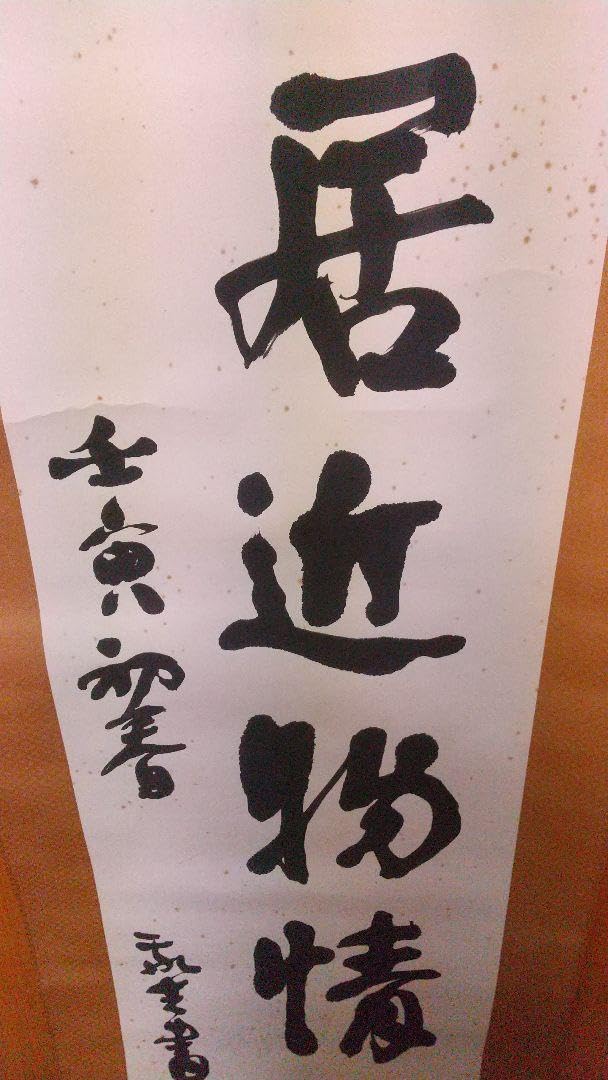 居近物情
壬寅初春
書